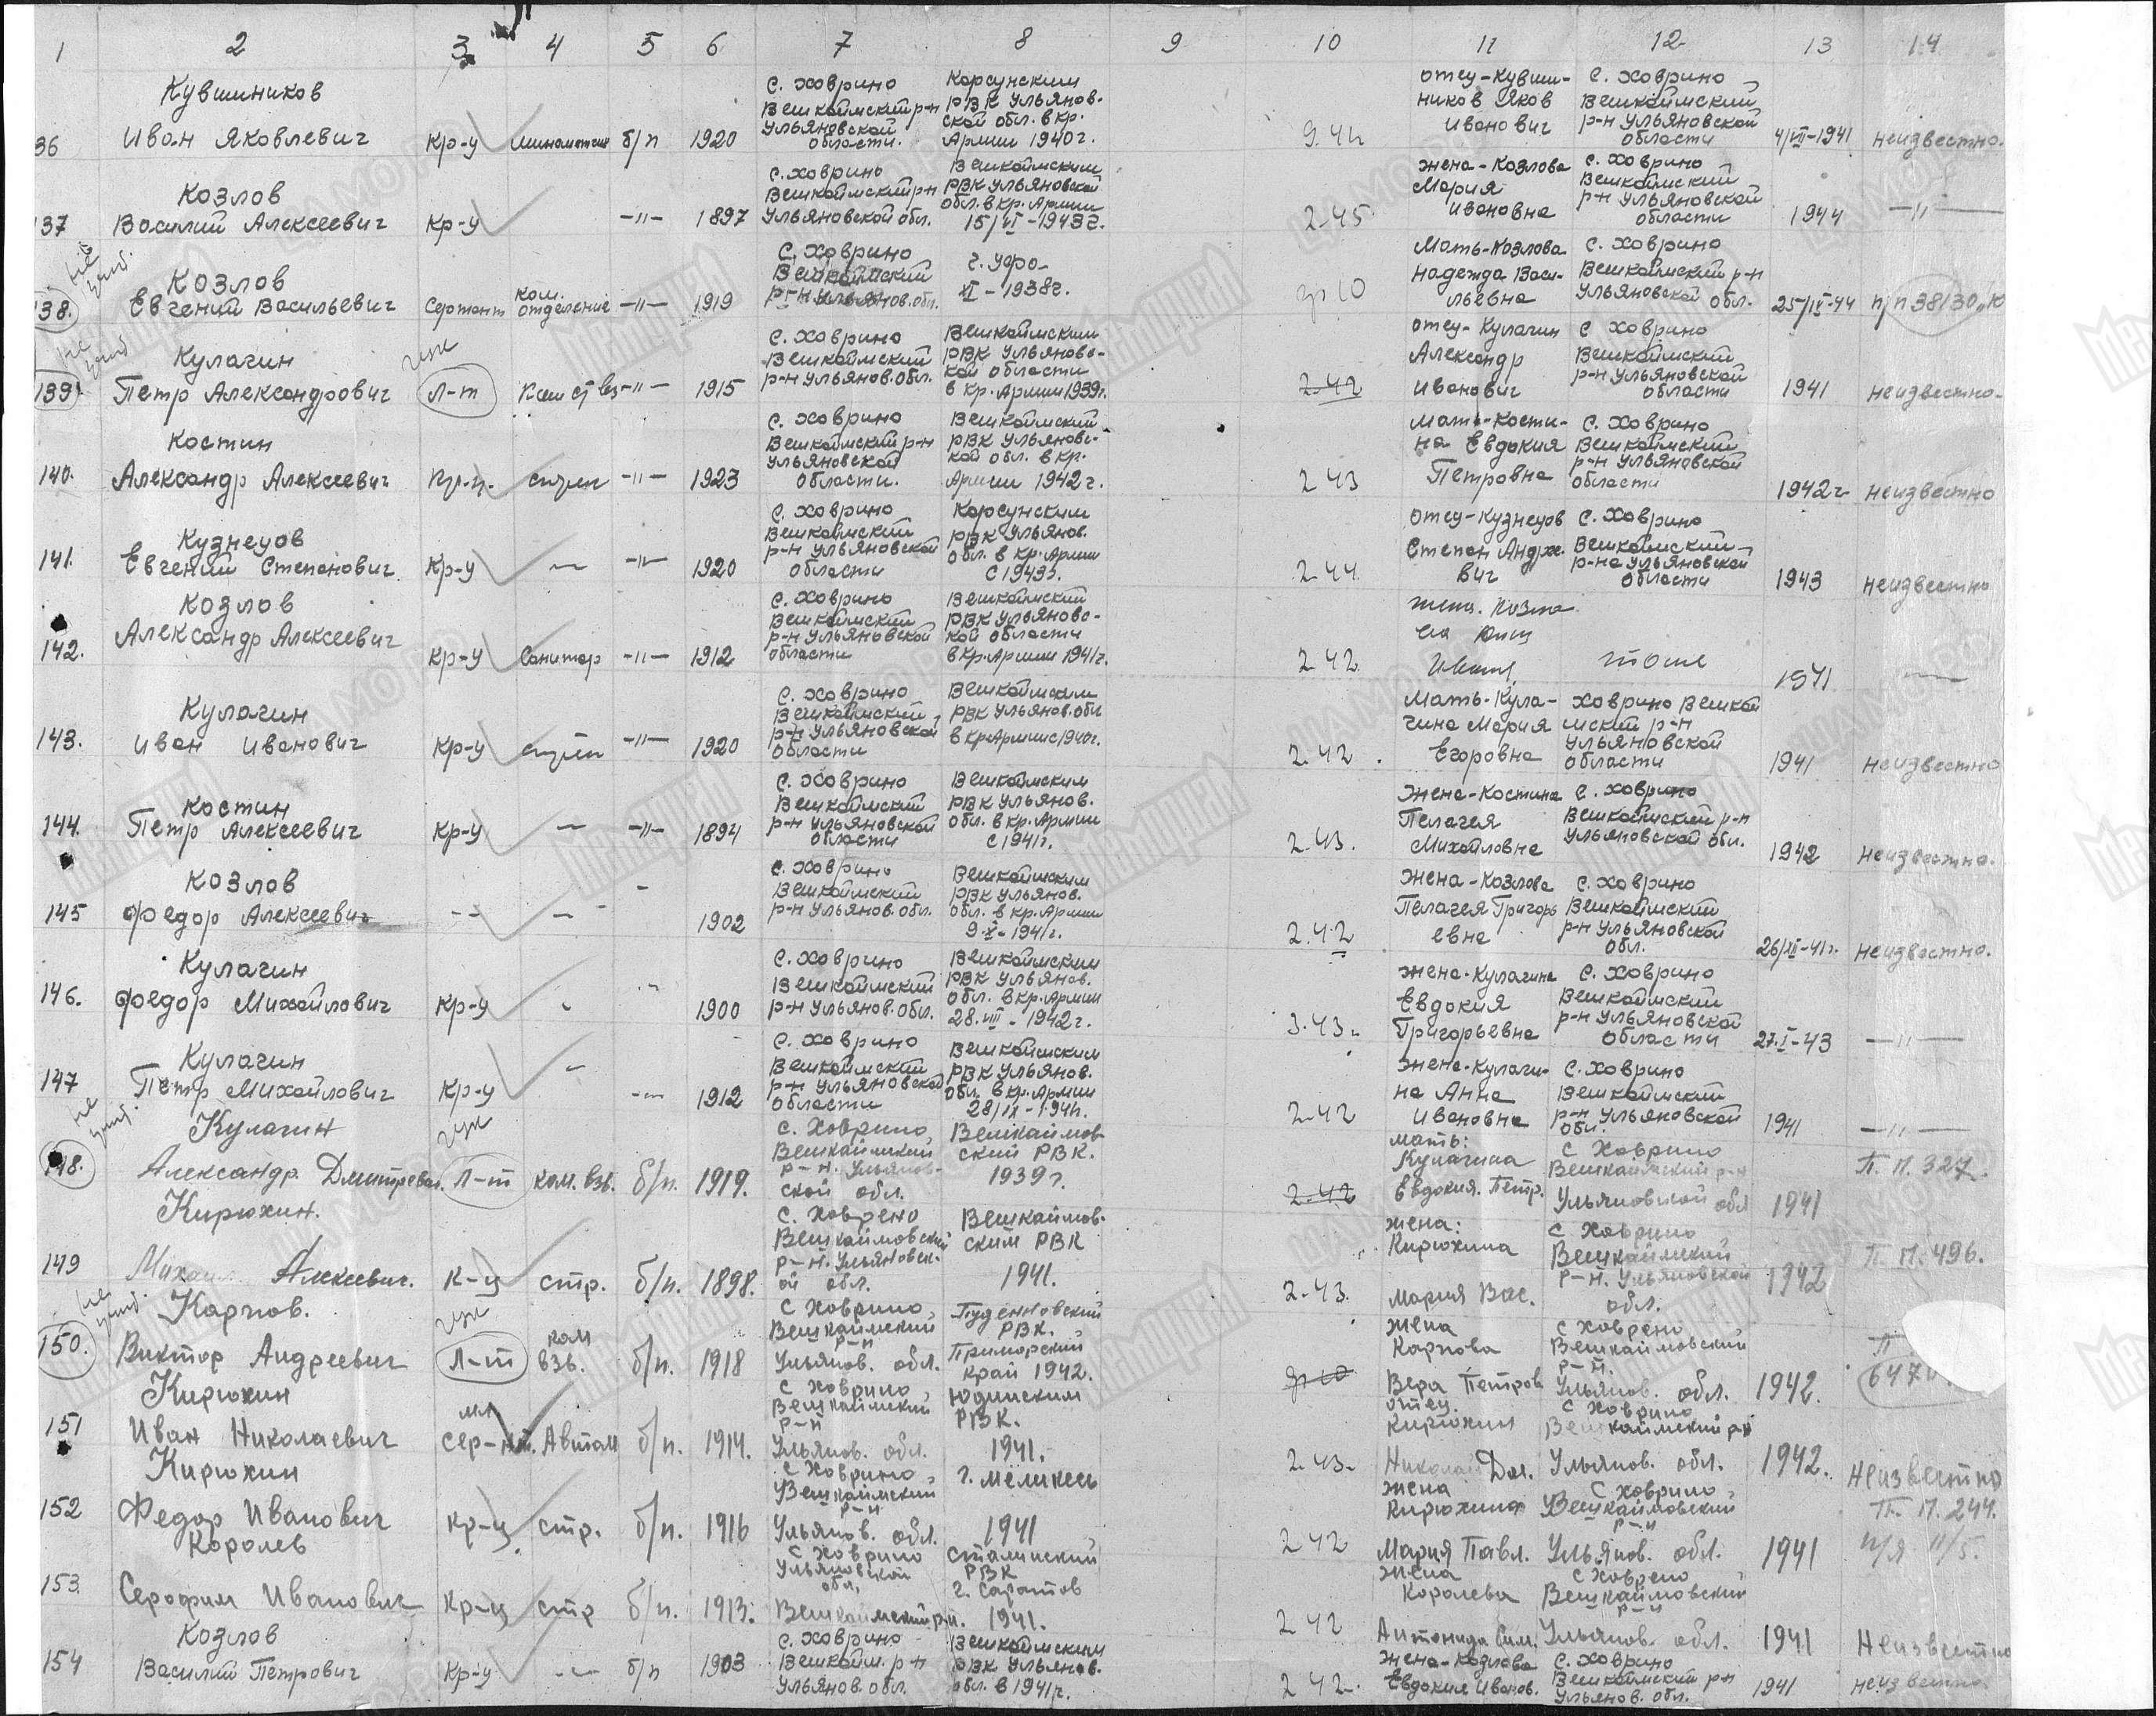 1 2 3 4 5 6 7 8 9 10 11 12 13 14
Кувшиников
Иван Яковлевич
36 кр-ц минометчик б/п 1920
с. Ховрино
Вешкаймский р-н
Ульяновской
области.
Корсунским
РВК Ульянов-
ской обл. в кр.
Армии 1940 г.
9.42
отец-Кувши-
ников Яков
Иванович
с. Ховрино
Вешкаймский
р-н Ульяновской
области
4/VII-1941 неизвестно.
Козлов
37 Василий Алексеевич кр-ц -"- 1897
с. Ховрино
Вешкаймский р-н
Ульяновской обл.
Вешкаймским
РВК Ульяновской
обл. в кр. Армии
15/VI-1943 г.
2-45
жена-Козлова
Мария
Ивановна
с. Ховрино
Вешкаймский
р-н Ульяновской
области
1944 -"-
Козлов
138. Евгений Васильевич Сержант ком. отделение -"- 1919
с. Ховрино
Вешкаймский
р-н Ульянов. обл.
г. Уфа
XI-1938 г.
Мать-Козлова
Надежда Васи-
льевна
с. Ховрино
Вешкаймский р-н
Ульяновской обл.
25/IV-44 п/п 38130 "К
Кулагин
139. Петр Александрович Л-т -"- 1915
с. Ховрино
Вешкаймский
р-н Ульянов. обл.
Вешкаймским
РВК Ульяновс-
кой области
в кр. Армии 1939 г.
2-42
отец-Кулагин
Александр
Иванович
с. Ховрино
Вешкаймский
р-н Ульяновской
области
1941 неизвестно-
Костин
140. Александр Алексеевич -"- 1923
с. Ховрино
Вешкаймский р-н
Ульяновской
области.
Вешкаймский
РВК Ульяновс-
кой обл. в кр.
Армии 1942 г.
2 43
мать-Кости-
на Евдокия
Петровна
с. Ховрино
Вешкаймский
р-н Ульяновской
области
1942 г- неизвестно
Кузнецов
141. Евгений Степанович кр-ц — -"- 1920
с. Ховрино
Вешкаймский
р-н Ульяновской
области
Корсунским
РВК Ульянов.
обл. в кр. Армии
с 1943 г.
2-44
отец-Кузнецов
Степан Андре-
вич
с. Ховрино
Вешкаймский
р-на Ульяновской
области
1943 неизвестно
Козлов
Александр Алексеевич
142. кр-ц Санитар -"- 1912
с. Ховрино
Вешкаймский
р-н Ульяновской
области
Вешкаймский
РВК Ульяновс-
кой области
в кр. Армии 1941 г.
2-42
тоже
1941 —
Кулагин
143. Иван Иванович кр-ц -"- 1920
с. Ховрино
Вешкаймский
р-н Ульяновской
области
Вешкаймским
РВК Ульянов. обл
в кр Армию 1940 г.
2.42
Мать-Кула-
гина Мария
Егоровна
Ховрино Вешкай
мский р-н
Ульяновской
области
1941 неизвестно
Костин
144. Петр Алексеевич кр-ц — -"- 1894
с. Ховрино
Вешкаймский
р-н Ульяновской
области
Вешкаймским
РВК Ульянов.
обл. в кр. Армии
с 1941 г.
2-43.
жена-Костина
Пелагея
Михайловна
с. Ховрино
Вешкаймский р-н
Ульяновской обл.
1942 неизвестно.
Козлов
145 Федор Алексеевич -- — 1902
с. Ховрино
Вешкаймский
р-н Ульянов. обл.
Вешкаймским
РВК Ульянов.
обл. в кр. Армии
9-X-1941 г.
2.42
жена-Козлова
Пелагея Григорь
евна
с. Ховрино
Вешкаймский
р-н Ульяновской
обл.
26/XII-41 г. неизвестно.
Кулагин
146. Федор Михайлович кр-ц 1900
с. Ховрино
Вешкаймский
р-н Ульянов. обл.
Вешкаймским
РВК Ульянов.
обл. в кр. Армии
28.VIII-1942 г.
3.43.
жена-Кулагина
Евдокия
Григорьевна
с. Ховрино
Вешкаймский
р-н Ульяновской
области
27.I-43 -"-
Кулагин
147 Петр Михайлович кр-ц 1912
с. Ховрино
Вешкаймский
р-н Ульяновской
области
Вешкаймским
РВК Ульянов.
обл. в кр. Армии
2-42
жена-Кулаги-
на Анна
Ивановна
с. Ховрино
Вешкаймский
р-н Ульяновской
обл.
1941 -"-
Кулагин
148. Александр Дмитревич. Л-т ком. взв. б/п. 1919.
с. Ховрино,
Вешкаймский
р-н. Ульянов-
ской обл.
Вешкаймов-
ский РВК.
1939 г.
2-42
мать:
Кулагина
Евдокия. Петр.
с Ховрино
Вешкаймский р-н
Ульяновской обл
1941 П. П. 327.
Кирюхин.
149 Михаил Алексеевич. к-ц стр. б/п. 1898.
с. Ховрено
Вешкаймовский
р-н. Ульяновск-
ой обл.
Вешкаймов-
ским РВК
1941.
2-43.
жена:
Кирюхина
Мария Вас.
с Ховрино
Вешкаймский
р-н. Ульяновской
обл.
1942 П. П. 496.
Карпов.
150. Виктор Андреевич Л-т ком взв. б/п. 1918
с Ховрино,
Вешкаймский
р-н
Ульянов. обл.
Буденновский
РВК.
Приморский
край 1942.
жена
Карпова
Вера Петров
с Ховрено
Вешкаймовский
р-н.
Ульянов. обл.
1942. П
647
Кирюхин
151 Иван Николаевич мл сер-нт. Автом б/п. 1914.
с Ховрино,
Вешкаймский
р-н
Ульянов. обл.
Юдинским
РВК.
1941.
2-43-
отец.
Кирюхин
Николай Дм.
с Ховрино
Вешкаймский р-н
Ульянов. обл.
1942. Неизвестно
Кирюхин
152 Федор Иванович кр-ц. стр. б/п. 1916
с Ховрино,
Вешкаймский
р-н
Ульянов. обл.
г. Мелекесс
1941
2 42
жена
Кирюхина
Мария Павл.
с Ховрино,
Вешкаймовский
р-н
Ульянов. обл.
1941 П. П. 244.
п/я 11/5.
Королев
153. Серофим Иванович кр-ц стр б/п. 1913.
с Ховрино
Ульяновской
обл.
Вешкаймский р-н.
Сталинский
РВК
г. Саратов
1941.
2 42
жена
Королева
Антонида Сим.
с Ховрено
Вешкаймовский
р-н
Ульянов. обл.
1941 Неизвестно
Козлов
154 Василий Петрович кр-ц б/п 1903
с. Ховрино
Вешкайм. р-н
Ульянов. обл.
Вешкаймским
РВК Ульянов.
обл. в 1941 г.
2 42.
жена-Козлова
Евдокия Иванов.
с. Ховрино
Вешкаймский р-н
Ульянов. обл.
1941 неизвестно.